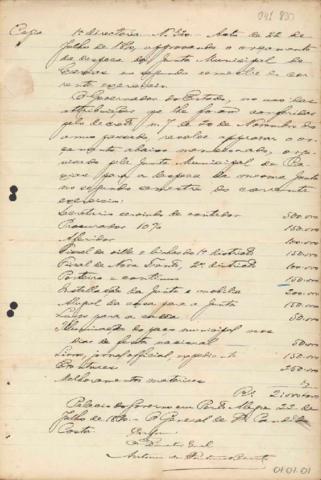 Copia
1ª directoria - Nº 330 - Acto de 22 de
Julho de 1890, approvando o orçamento
da despeza da Junta Municipal de
no segundo semestre do cor-
rente exercicio.
O Governador do Estado, no uso das
attribuições que lhe foram conferidas
pelo decreto nº 7 de 20 de Novembro do
anno passado, resolve approvar o or-
çamento abaixo mencionado, o
pela Junta Municipal de Ca-
xias para a despeza da mesma Junta
no segundo semestre do corrente
exercicio:
Secretario servindo de contador 300.000
Procurador 10% 150.000
Aferidor 100.000
Fiscal da villa e 1º districto 150.000
Fiscal de Nova Trento, 2º districto 100.000
Porteiro e continuo 150.000
Installação da Junta e mobilia 200.000
Aluguel da casa para a Junta 150.000
para a 50.000
Illuminação do paço municipal nos
dias de festa nacional 50.000
Livros, jornal official, expediente 150.000
Eventuaes 250.000
Melhoramentos materiaes
Rs.
Palacio do Governo em Porto Alegre, 22 de
Julho de 1890. O General
Costa.
Conforme
O Director Geral
Antonio
01.01.01